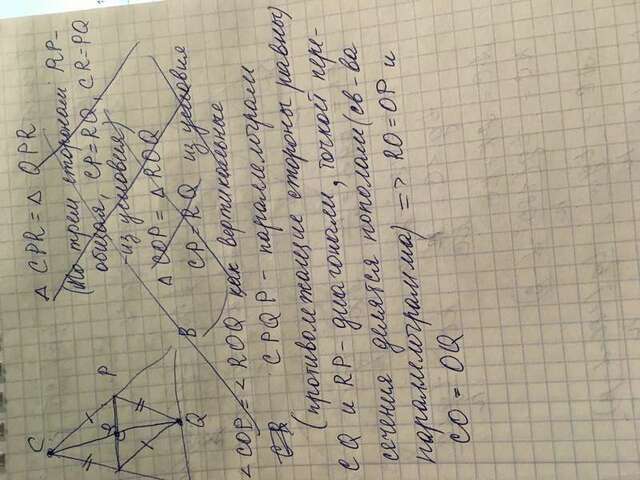 C
P
O
Q
B
Δ CPR = Δ QPR
(По трем сторонам RP-
общая, CP=RQ, CR=PQ
из условия)
Δ COP = Δ ROQ
CP=RQ из условия
∠COP = ∠ROQ как вертикальные
CPQР - параллелограм
(противолежащие стороны равны)
CQ и RP- диагонали, точкой пере-
сечения делятся пополам (св-во
параллелограмма) => RO=OP и
CO = OQ